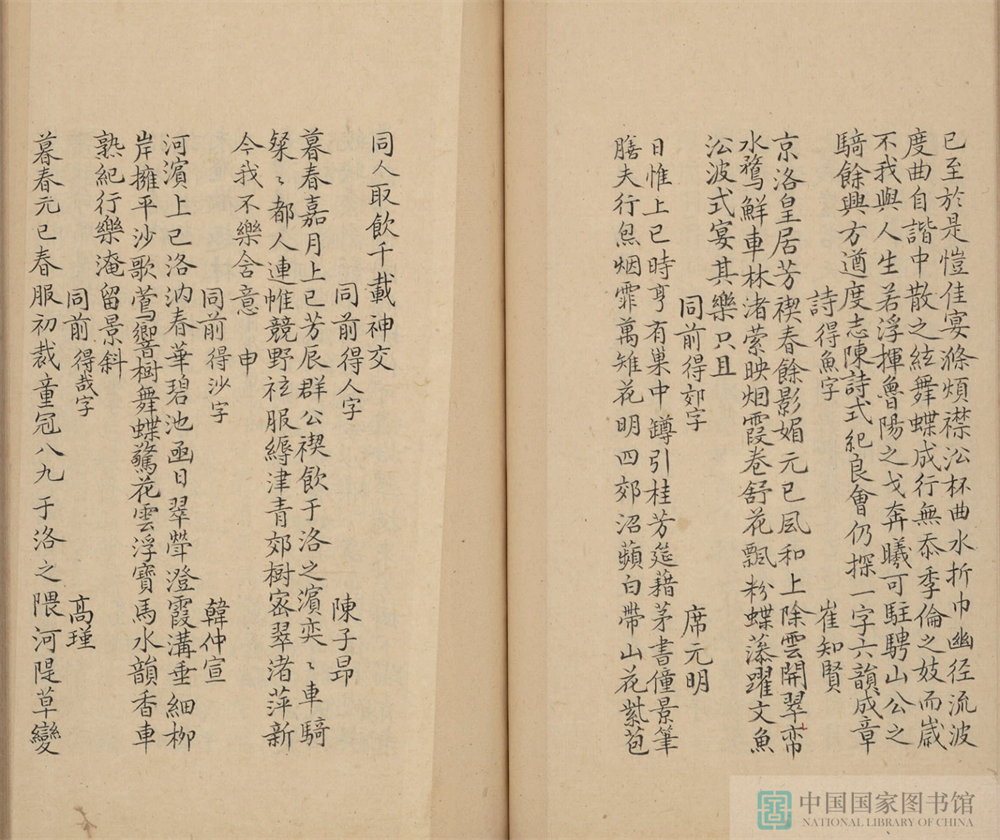 已至於是愷佳宴滌煩襟沿杯曲水折巾幽径流波
度曲自諧中散之絃舞蝶成行無忝季倫之妓而嵗
不我與人生若浮揮魯陽之戈奔曦可駐騁山公之
騎餘興方遒度志陳詩式紀良會仍探一字六韻成章
詩得魚字 崔知賢
京洛皇居芳禊春餘影媚元巳風和上除雲開翠帟
水鶩鮮車林渚縈映烟霞卷舒花飄粉蝶藻躍文魚
沿波式宴其樂只且
同前得郊字 席元明
日惟上巳時亨有巢中罇引桂芳莚藉茅書僮景筆
膳夫行炰烟霏萬雉花明四郊沼蘋白帶山花紫苞
同人取飲千載神交
同前得人字 陳子昂
暮春嘉月上巳芳辰群公禊飲于洛之濱奕〻車騎
粲〻都人連帷競野袨服縟津青郊樹密翠渚萍新
今我不樂舍意 申
同前得沙字 韓仲宣
河濱上巳洛汭春華碧池函日翠斝澄霞溝垂細柳
岸擁平沙歌鶯響樹舞蝶驚花雲浮寶馬水韻香車
熟紀行樂淹留景斜
同前得哉字 高瑾
暮春元巳春服初裁童冠八九于洛之隈河隄草變
中国国家图书馆
NATIONAL LIBRARY OF CHINA